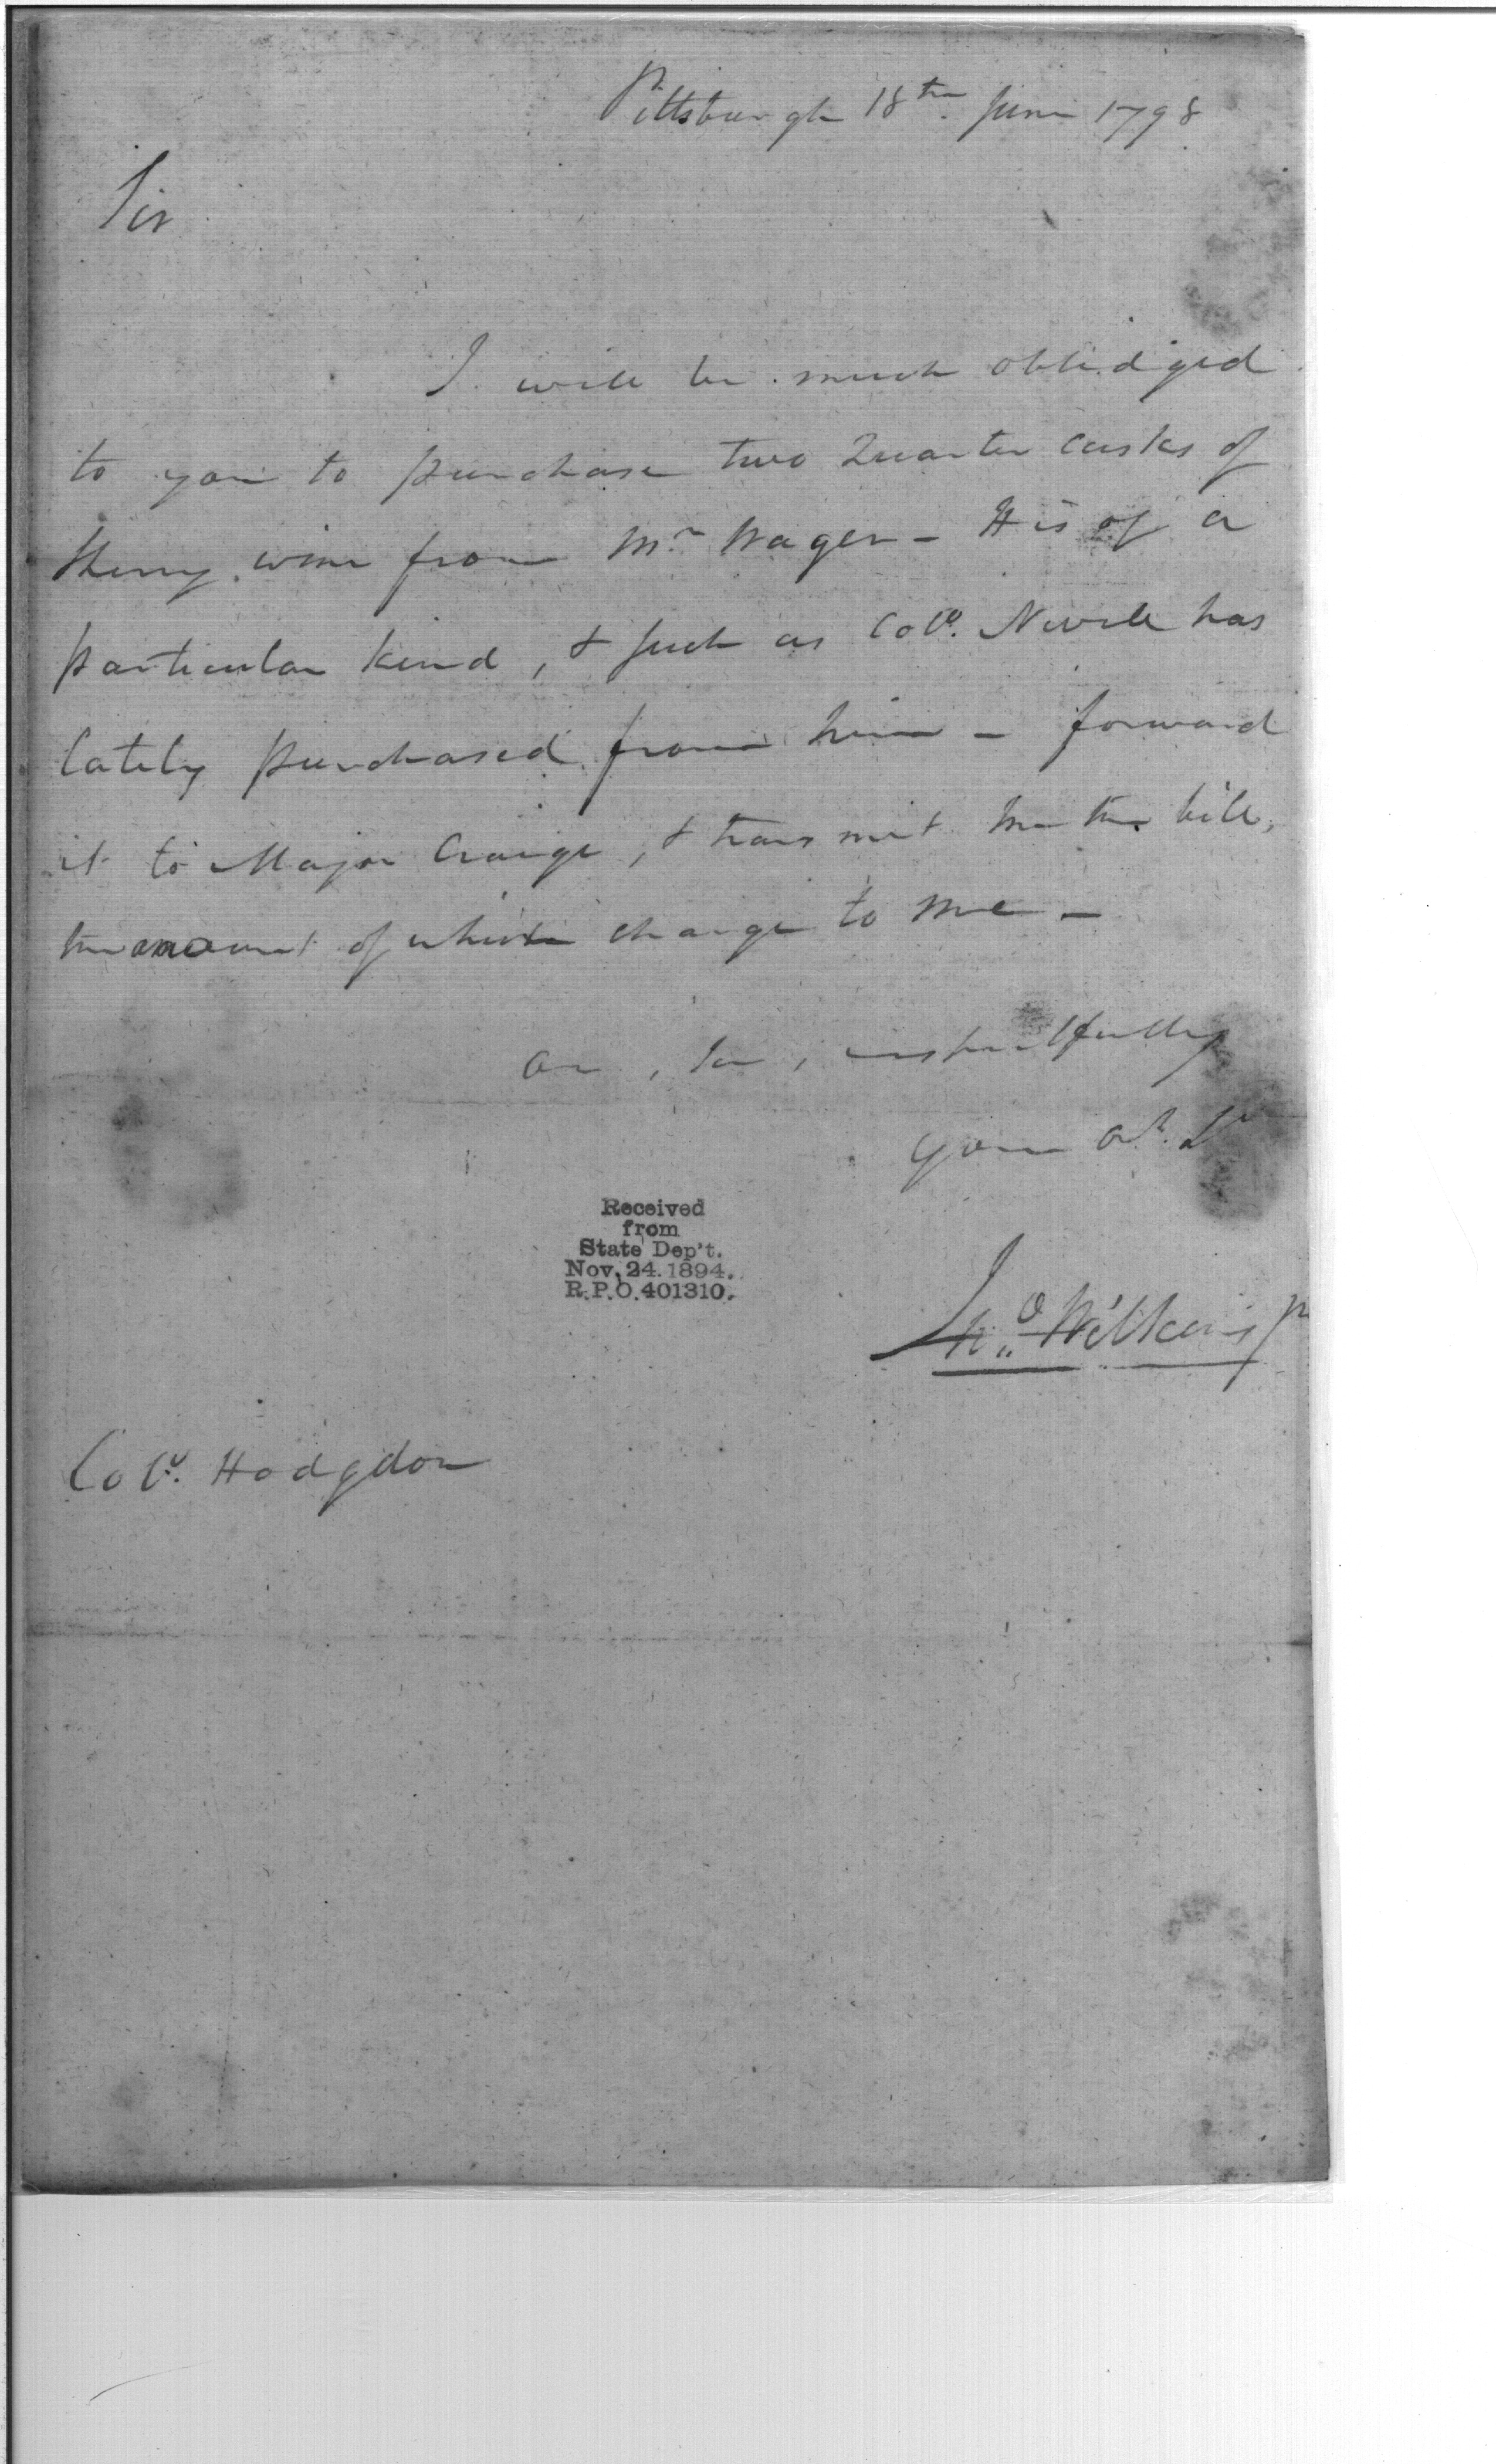 Pittsburgh 18th. June 1798
Sir
I will be much oblidged
to you to purchase two Quarter Casks of
Sherry wine from Mr. Wager - It is of a
particular kind, & such as Colo. Nevill has
lately purchased from him - forward
it to Major Craige, & transmit me the bill,
the amount of which charge to me -
am, Sir, respectfully
your Ob.
Received
from
State Dep't.
Nov. 24. 1894.
R.P.O. 401310.
Jno. Wilkins Jr
Colo. Hodgdon